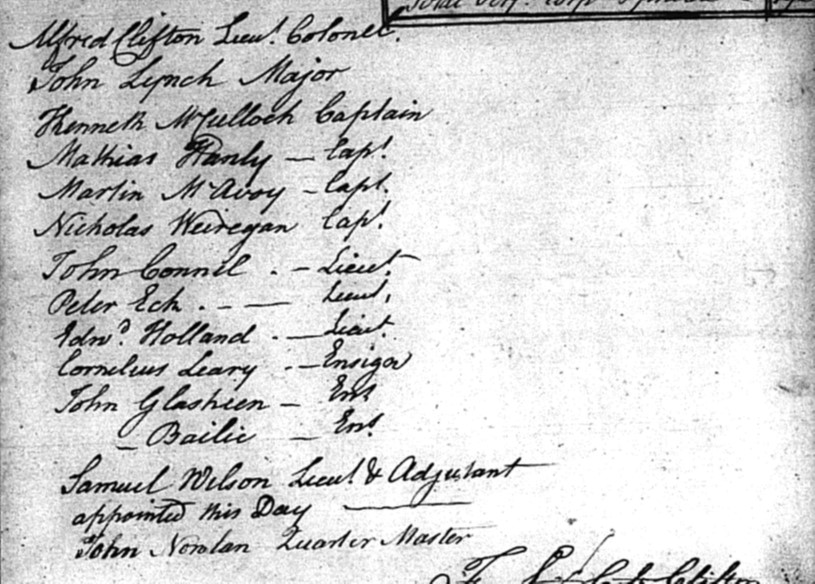 Alfred Clifton Lieut. Colonel.
John Lynch Major
Kenneth McCulloch Captain
Mathias Hanly — Capt.
Martin McAvoy – Capt.
Nicholas Weiregan Capt.
John Connel . – Lieut.
Peter Eck . – — Lieut.
Edwd. Holland . — Lieut.
Cornelius Leary . – Ensign
John Glasheen – Ens
– Bailie – Ens.
Samuel Wilson Lieut. & Adjutant
appointed this Day ———
John Nowlan Quarter Master
Clifton